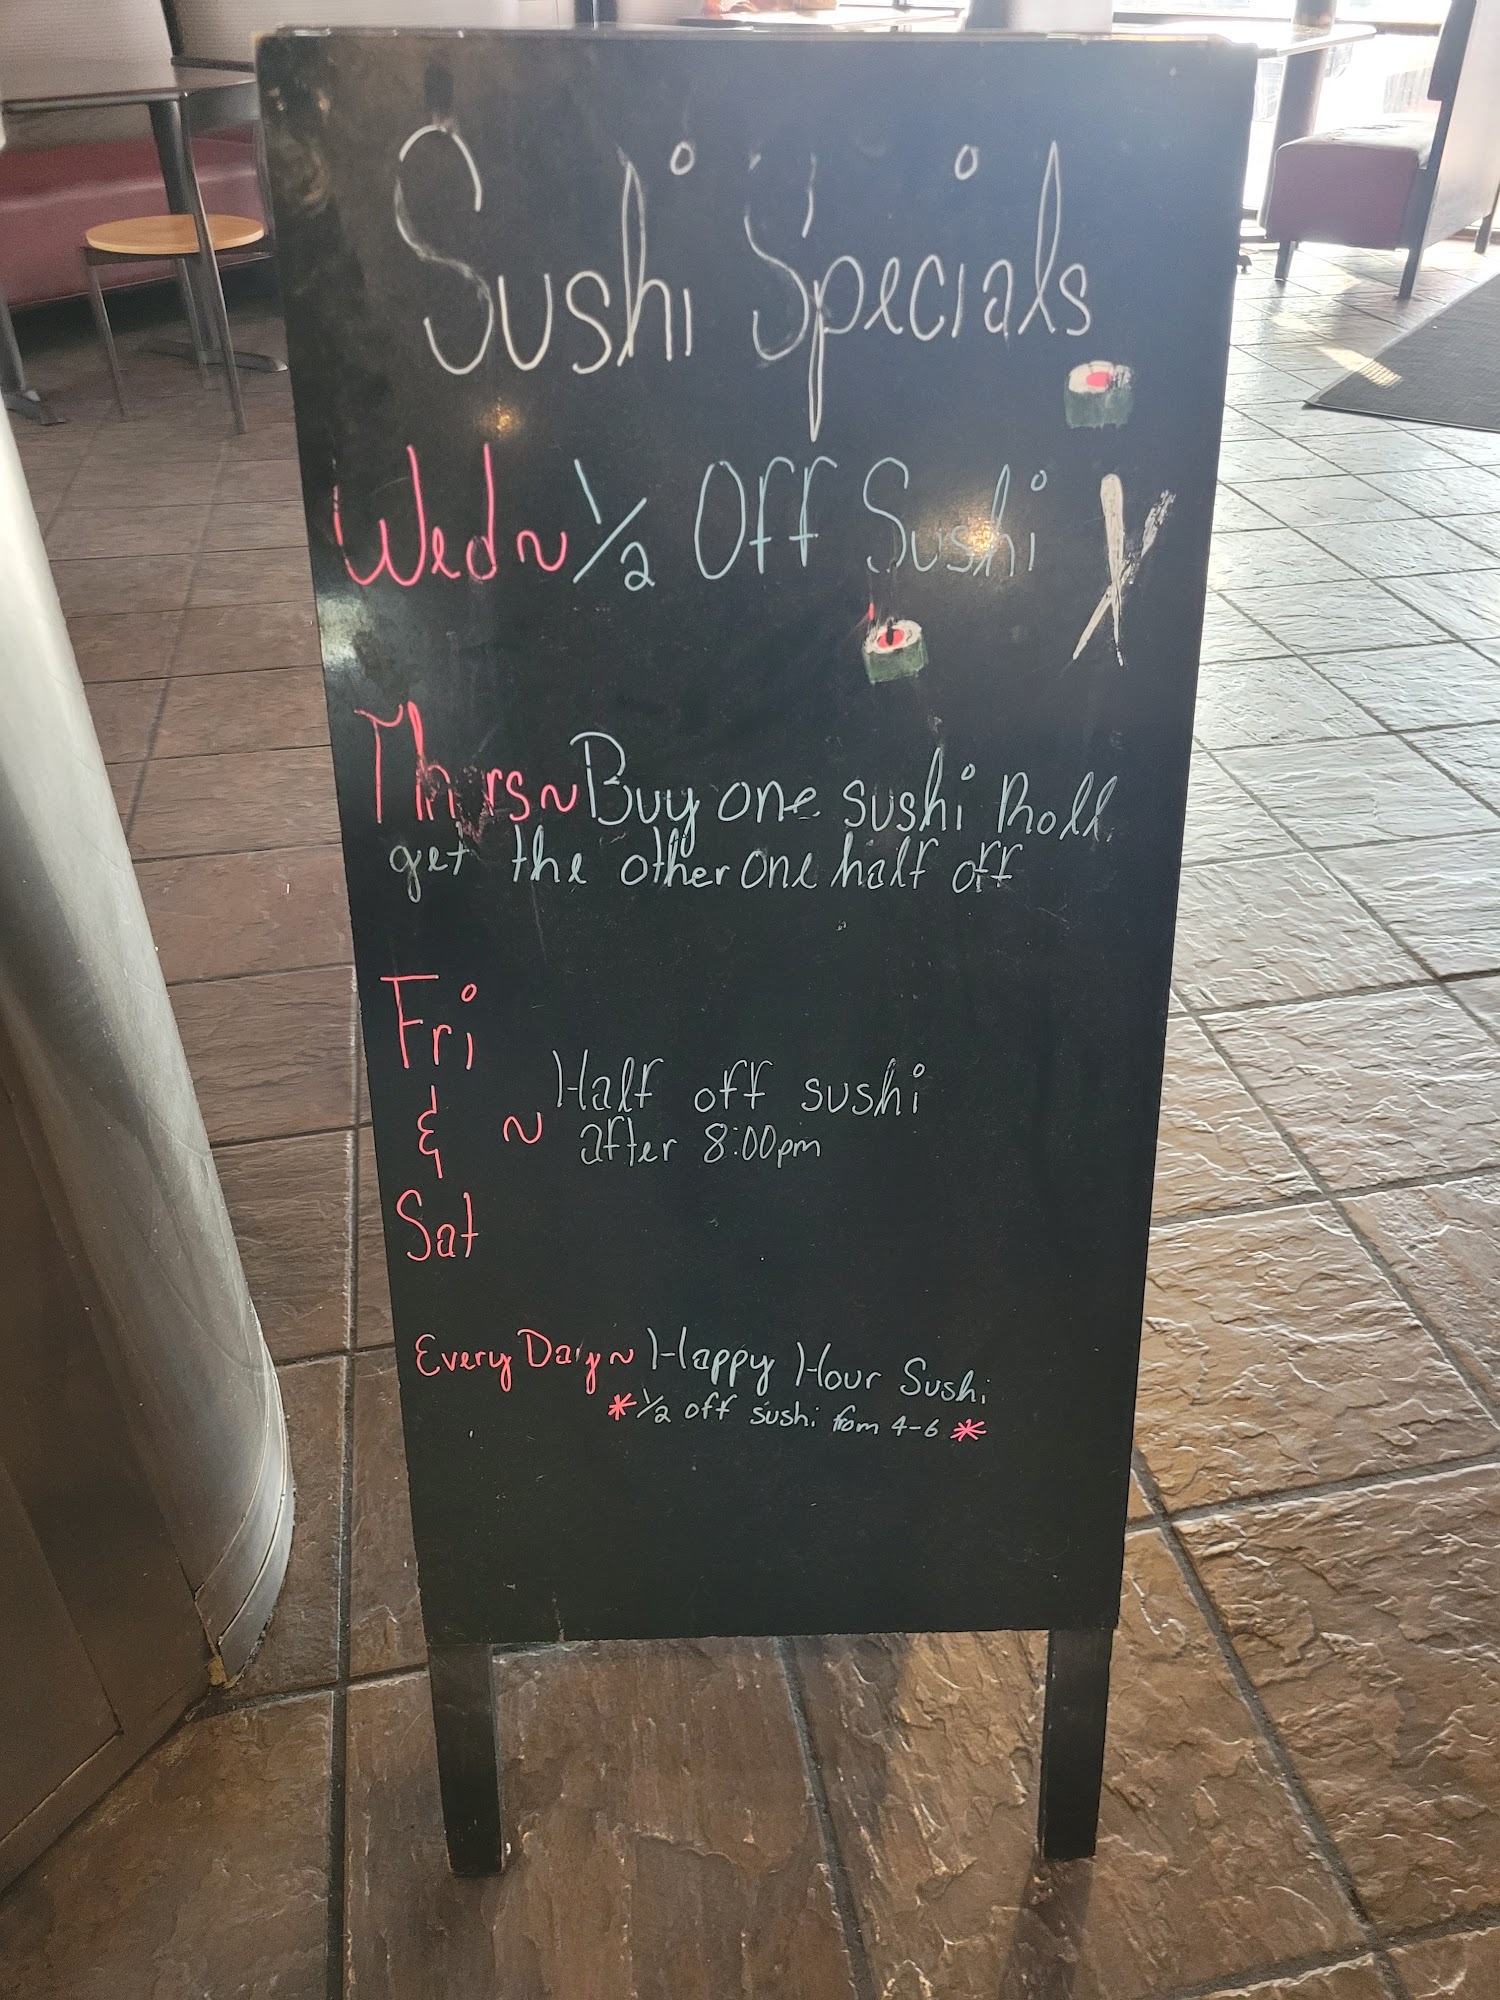 Sushi Specials
Wed ~ 1/2 Off Sushi
Thurs ~ Buy one sushi Roll
get the other one half off
Fri
&
Sat
~ Half off sushi
after 8:00pm
Every Day ~ Happy Hour Sushi
* 1/2 off sushi from 4-6 *